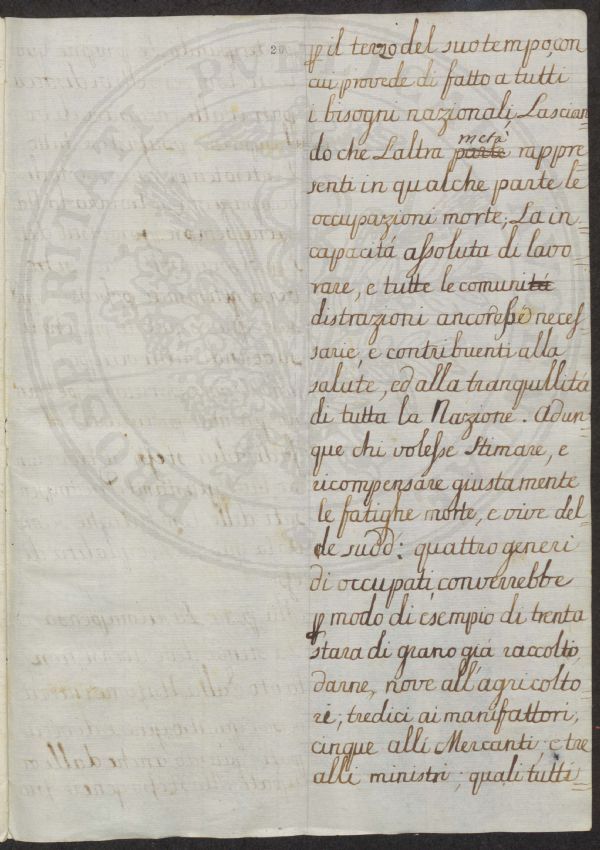 20
ꝑ il terzo del suo tempo, con
cui provede di fatto a tutti
i bisogni nazionali, Lascian=
do che L'altra parte metà rappre
senti in qualche parte le
occupazioni morte; La in=
capacitá assoluta di lavo=
rare, e tutte le comunitá
distrazioni ancoressé neces=
sarie, e contribuenti alla
salute, ed alla tranquillitá
di tutta la Nazione. Adun=
que chi volesse stimare, e
ricompensare giustamente
le fatighe morte, e vive del=
le sudd: quattro generi
di occupati, converrebbe
ꝑ modo di esempio di trenta
stara di grano giá raccolto,
darne, nove all'agricolto=
re; tredici ai manifattori,
cinque alli Mercanti, e tre
alli ministri; quali tutti=
PROSPERITATI PUBLICAE